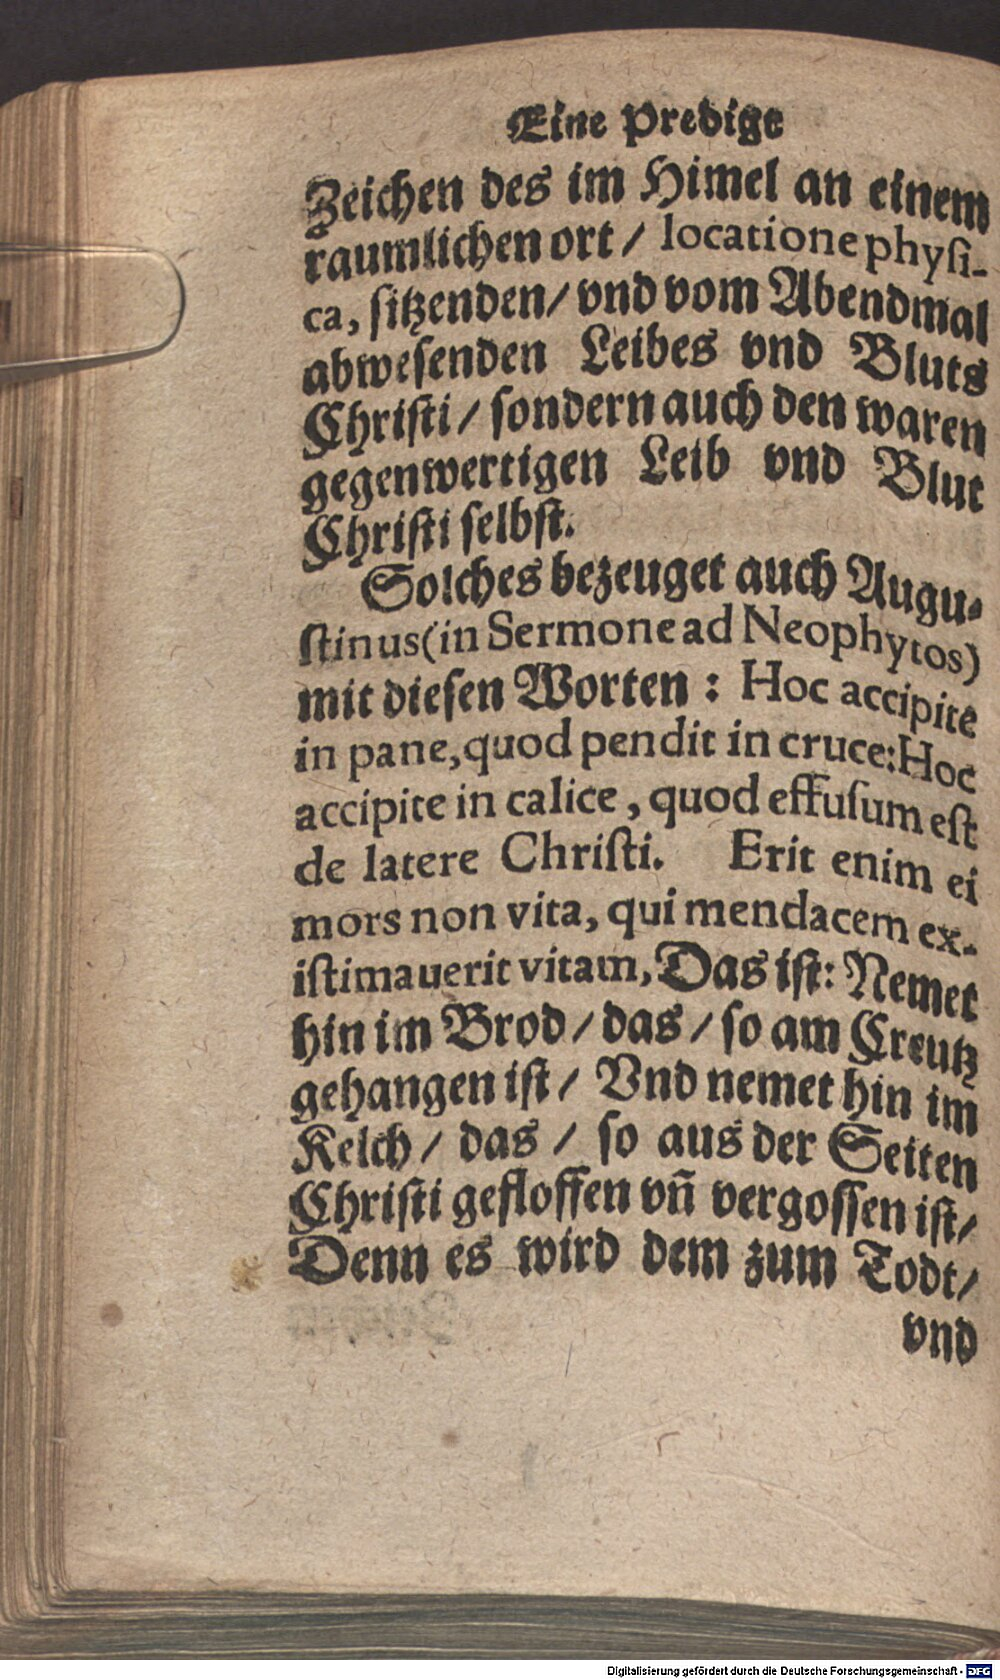 Eine Predigt
Zeichen des im Himel an einem
raumlichen ort / locatione physi-
ca, sitzenden / vnd vom Abendmal
abwesenden Leibes vnd Bluts
Christi / sondern auch den waren
gegenwertigen Leib vnd Blut
Christi selbst.
Solches bezeuget auch Augu-
stinus (in Sermone ad Neophytos)
mit diesen Worten : Hoc accipite
in pane, quod pendit in cruce: Hoc
accipite in calice, quod effusum est
de latere Christi. Erit enim ei
mors non vita, qui mendacem ex-
istimauerit vitam, Das ist: Nemet
hin im Brod / das / so am Creutz
gehangen ist / Vnd nemet hin im
Kelch / das / so aus der Seiten
Christi geflossen vñ vergossen ist /
Denn es wird dem zum Todt /
vnd
Digitalisierung gefördert durch die Deutsche Forschungsgemeinschaft - DFG